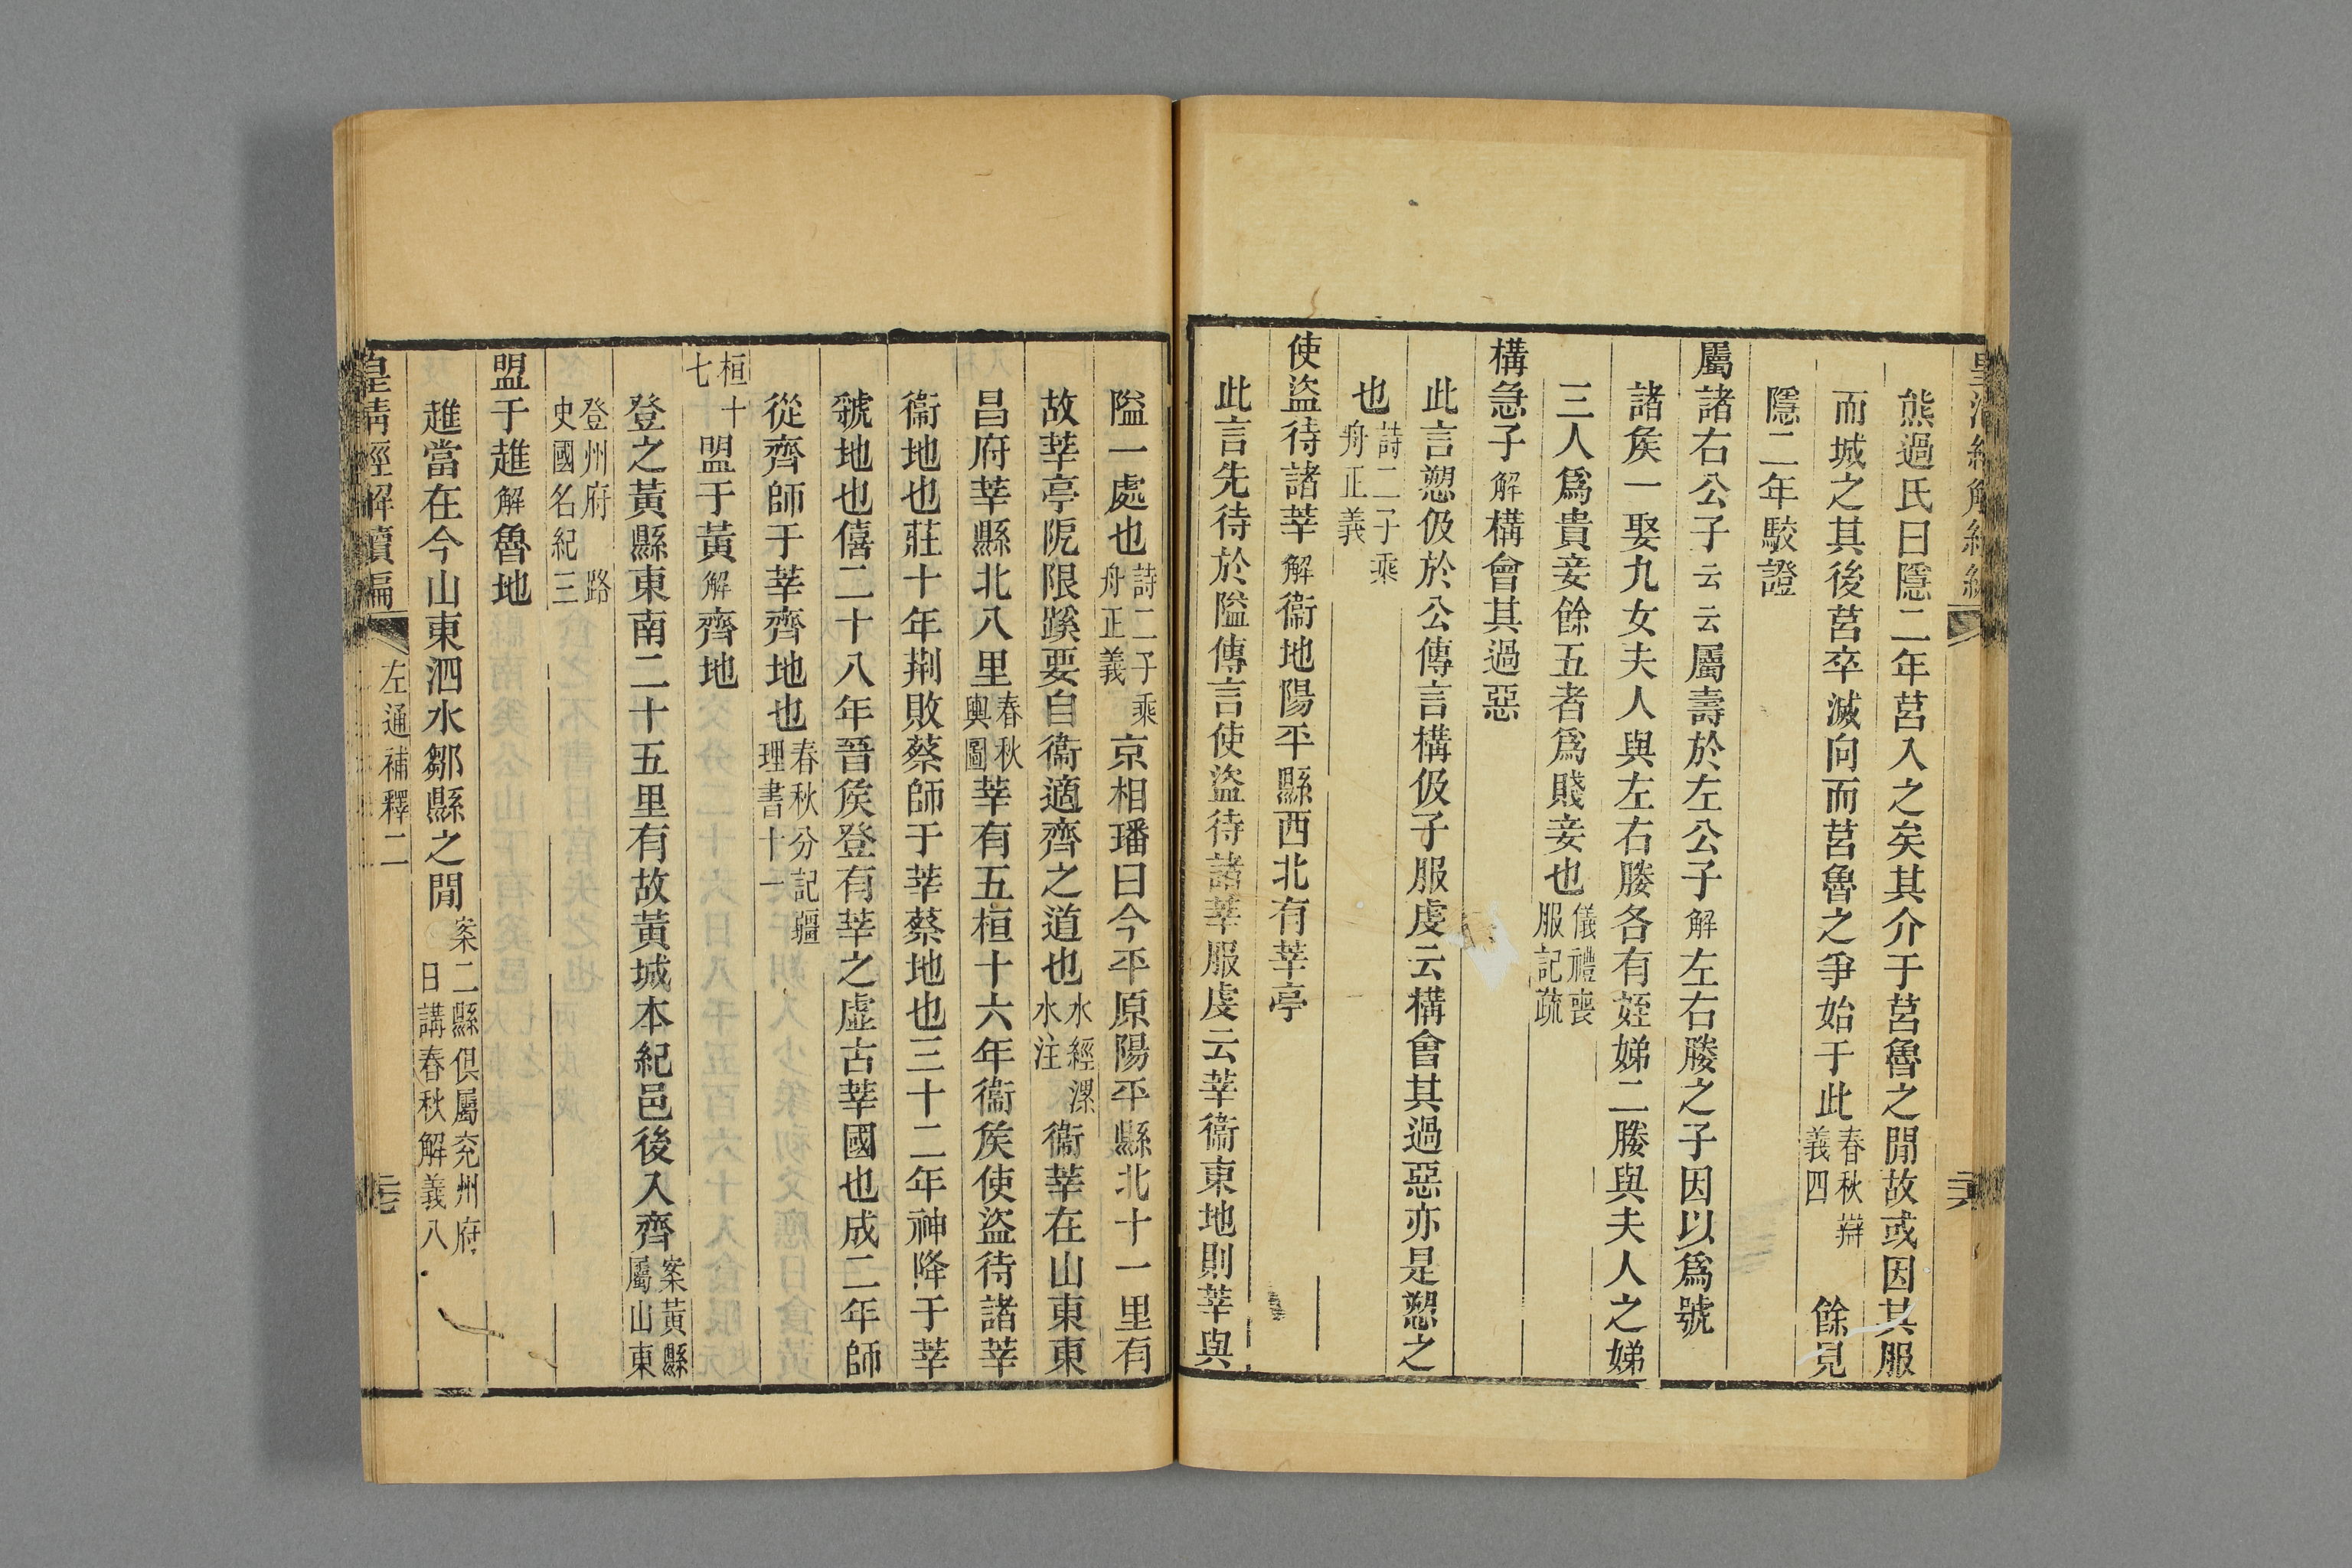 熊過氏曰隱二年莒入之矣其介于莒魯之閒故或因其服
而城之其後莒卒滅向而莒魯之爭始于此春秋辯義四餘見
隱二年駮證
屬諸右公子云云屬壽於左公子解左右媵之子因以爲號
諸矦一娶九女夫人與左右媵各有姪娣二媵與夫人之娣
三人爲貴妾餘五者爲賤妾也儀禮喪服記疏
構急子解構會其過惡
此言愬伋於公傳言構伋子服虔云構會其過惡亦是愬之
也詩二子乘舟正義
使盜待諸莘解衞地陽平縣西北有莘亭
此言先待於隘傳言使盜待諸莘服虔云莘衞東地則莘與
隘一處也詩二子乘舟正義京相璠曰今平原陽平縣北十一里有
故莘亭阨限蹊要自衞適齊之道也水經漯水注衞莘在山東東
昌府莘縣北八里春秋輿圖莘有五桓十六年衞矦使盜待諸莘
衞地也莊十年荆敗蔡師于莘蔡地也三十二年神降于莘
虢地也僖二十八年晉矦登有莘之虛古莘國也成二年師
從齊師于莘齊地也春秋分記疆理書十一
桓十七盟于黃解齊地
登之黃縣東南二十五里有故黃城本紀邑後入齊案黃縣屬山東
登州府路史國名紀三
盟于趡解魯地
趡當在今山東泗水鄒縣之閒案二縣俱屬兖州府日講春秋解義八
皇清經解續編
左通補釋二